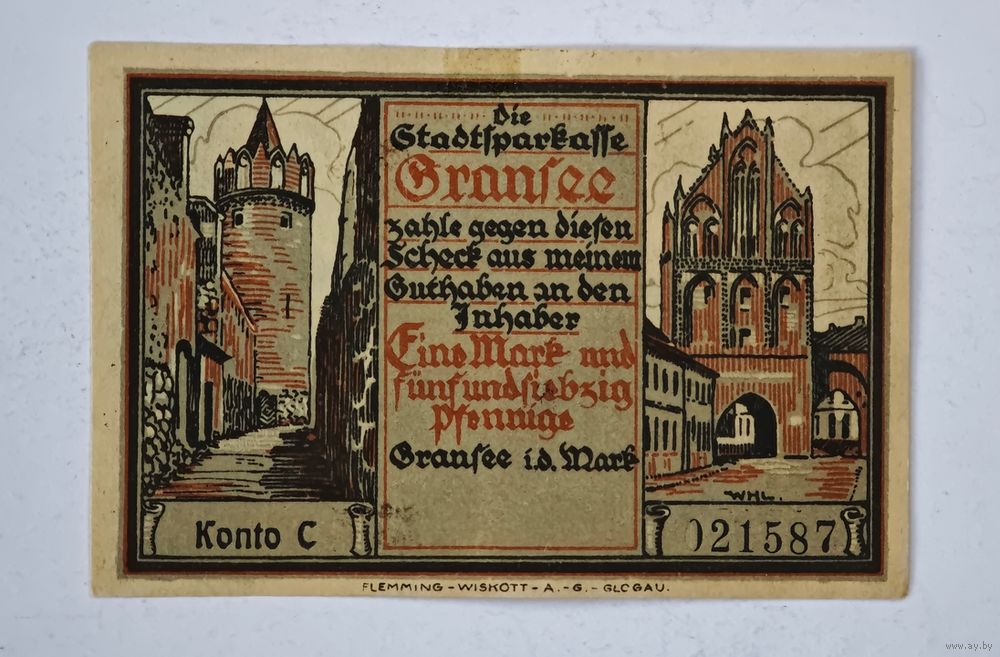 Die
Stadtsparkasse
Gransee
zahle gegen diesen
Scheck aus meinem
Guthaben an den
Inhaber
Eine Mark und
fünfundsiebzig
Pfennige
Gransee i.d. Mark
WHL.
Konto C
021587
FLEMMING-WISKOTT-A.-G.-GLOGAU.
www.ay.by